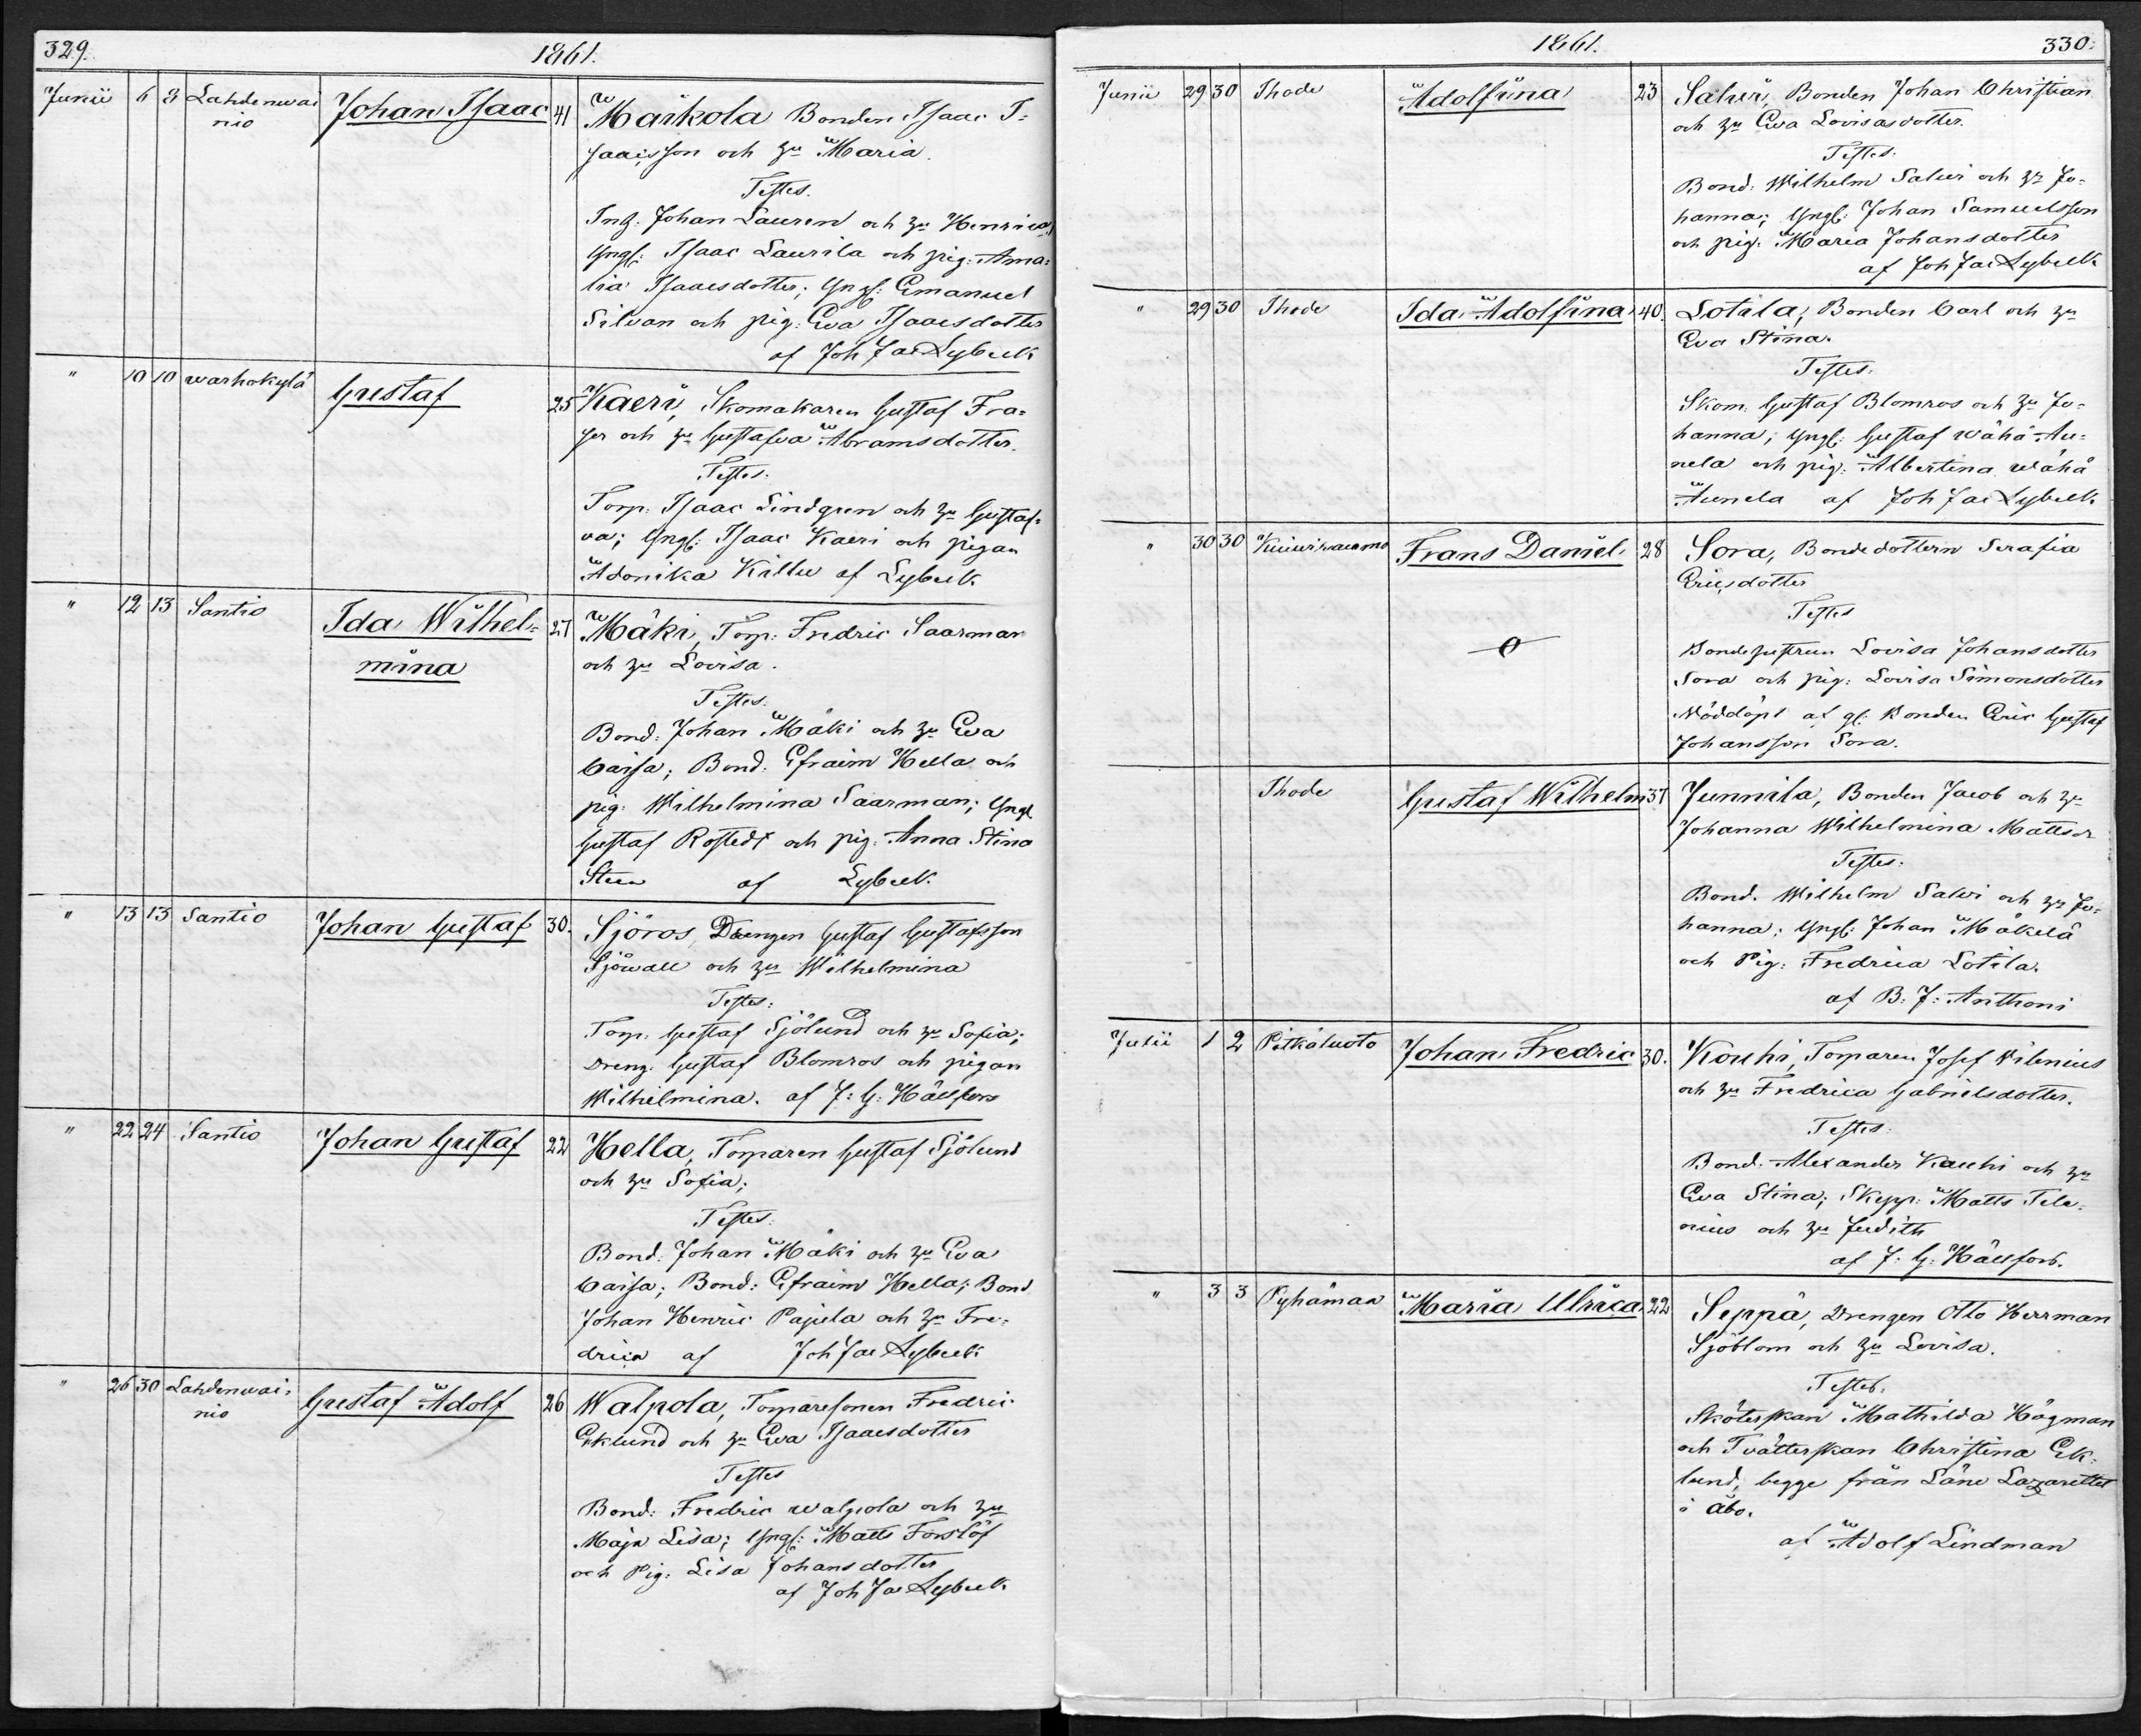 329.
1861.
Junii 6 8 Lahdenwai Johan Isaac 41 Markola Bonden Isaac I=
nio
saacsson och hu Maria.
Testes.
Inh: Johan Lauren och hu Henrica;
Yngl: Isaac Laurila och pig: Ama=
lia Isaacsdotter; Yngl: Emanuel
Silvan och pig: Eva Isaacsdotter
af Joh Jac Lybeck
" 10 10 warhokylä Gustaf 25 Kaeri, Skomakaren Gustaf Fra=
ser och hu Gustafva Abramsdotter.
Testes.
Torp: Isaac Lindgren och hu Gustaf=
va; Yngl: Isaac Kaeri och pigan
Adonika Killu af Lybeck
" 12 13 Santio Ida Wilhel= 27 Mäki, Torp: Fredric Saarman
mina
och hu Lovisa.
Testes.
Bond: Johan Mäki och hu Eva
Caisa; Bond: Efraim Hella och
pig: Wilhelmina Saarman; Yngl
Gustaf Rostedt och pig: Anna Stina
Steen af Lybeck.
" 13 13 Santio Johan Gustaf 30. Sjöros, Drengen Gustaf Gustafsson
Sjöwall och hu Wilhelmina
Testes:
Torp. Gustaf Sjölund och hu Sofia;
Dreng. Gustaf Blomros och pigan
Wilhelmina. af J: G: Hällfors
" 22 24 Santio Johan Gustaf 22 Hella, Torparen Gustaf Sjölund
och hu Sofia;
Testes:
Bond: Johan Mäki och hu Eva
Caisa; Bond: Efraim Hella; Bond
Johan Henric Pajula och hu Fre=
drica af Joh Jac Lybeck
" 26 30 Lahdenwai= Gustaf Adolf 26 Walpola, Torparesonen Fredric
nio
Eklund och hu Eva Isaacsdotter
Testes
Bond: Fredric walpola och hu
Maja Lisa; Yngl: Matts Forslöf
och Pig: Lisa Johansdotter
af Joh Jac Lybeck
1861.
330.
Junii 29 30 Ihode Adolfina 23 Salvi, Bonden Johan Christian
och hu Eva Lovisasdotter.
Testes:
Bond: Wilhelm Salvi och hu Jo=
hanna; Yngl: Johan Samuelsson
och pig: Maria Johansdotter
af Joh Jac Lybeck
" 29 30 Ihode Ida Adolfina 40. Lotila, Bonden Carl och hu
Eva Stina.
Testes:
Skom: Gustaf Blomros och hu Jo=
hanna; Yngl: Gustaf wähä-Au=
nela och pig: Albertina wähä
Aunela af Joh Jac Lybeck
" 30 30 Kuiviraumo Frans Daniel 28 Sora, Bondedottern Serafia
Ericsdotter
Testes
Bondehustrun Lovisa Johansdotter
Sora och pig: Lovisa Simonsdotter
Nöddöpt af gl: Bonden Eric Gustaf
Johansson Sora.
Ihode Gustaf Wilhelm 37 Junnila, Bonden Jacob och hu
Johanna Wilhelmina Mattsdr
Testes:
Bond. Wilhelm Salvi och hu Jo=
hanna; Yngl: Johan Mäkelä
och Pig: Fredrica Lotila.
af B: J: Anthoni
Julii 1 2 Pitkäluoto Johan Fredric 30. Kouhi, Torparen Josef Vilenius
och hu Fredrica Gabrielsdotter.
Testes:
Bond: Alexander Kouhi och hu
Eva Stina; Skepp: Matts Tele=
nius och hu Judith
af J: G: Hällfors.
" 3 3 Pyhämaa Maria Ulrica 22 Seppä, Drengen Otto Herrman
Sjöblom och hu Lovisa.
Testes.
Sköterskan Mathilda Högman
och Tvätterskan Christina Ek=
lund, begge från Läne Lazarettet
i Åbo.
af Adolf Lindman